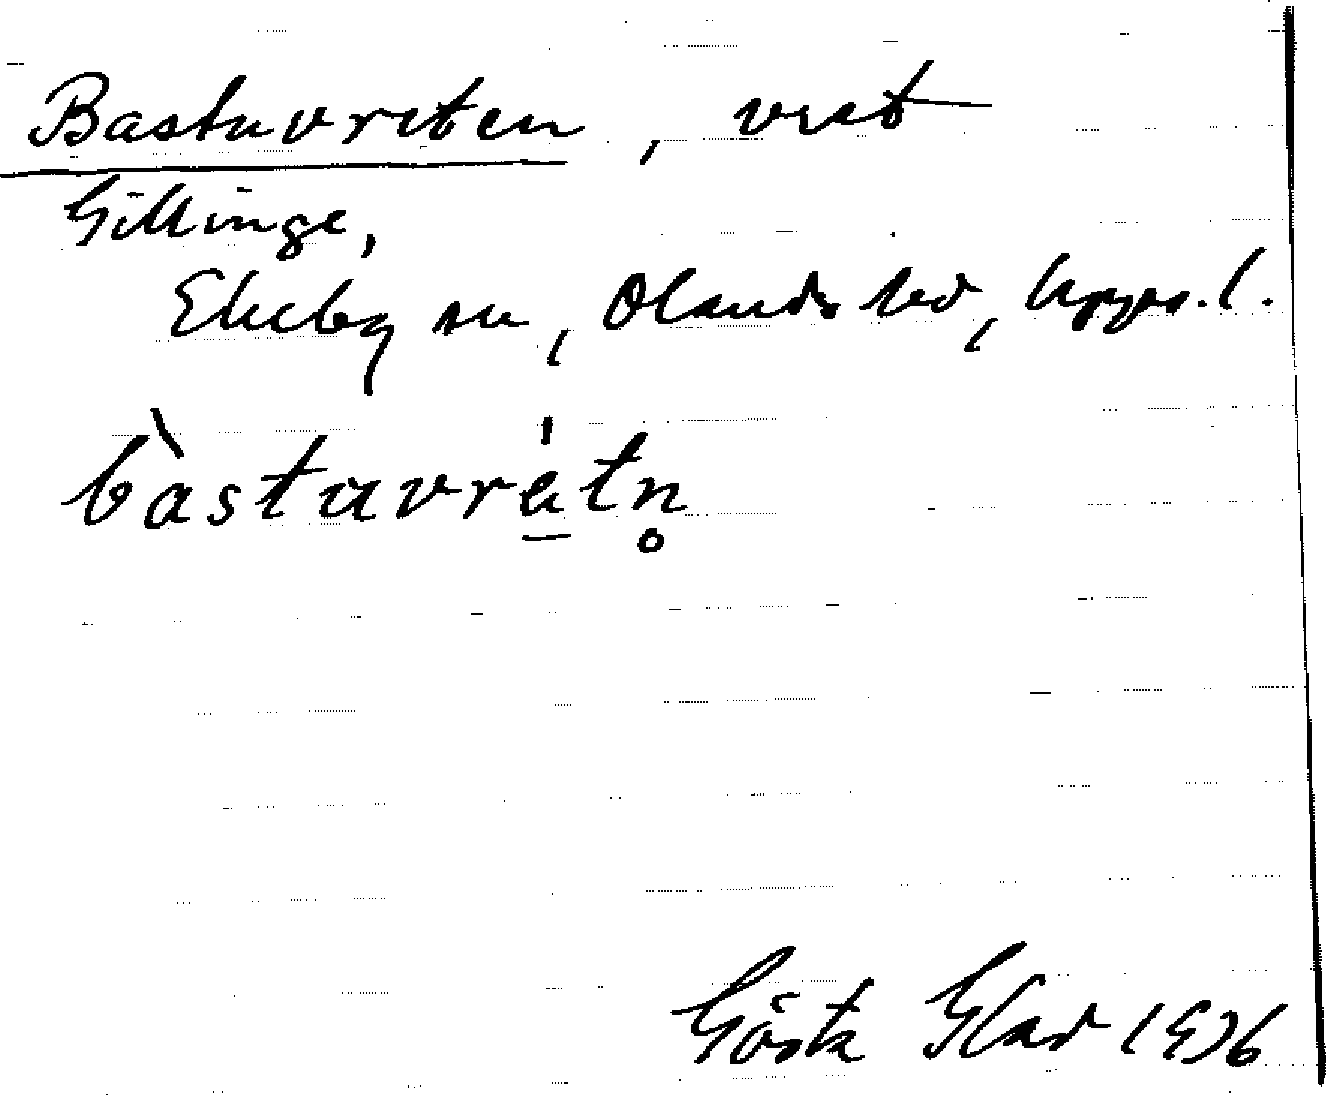 Bastuvreten, vret
Gillinge,
Ekeby sn, Olands hd, Upps. l.
bàstuvrétn̥
Gösta Glad 1936